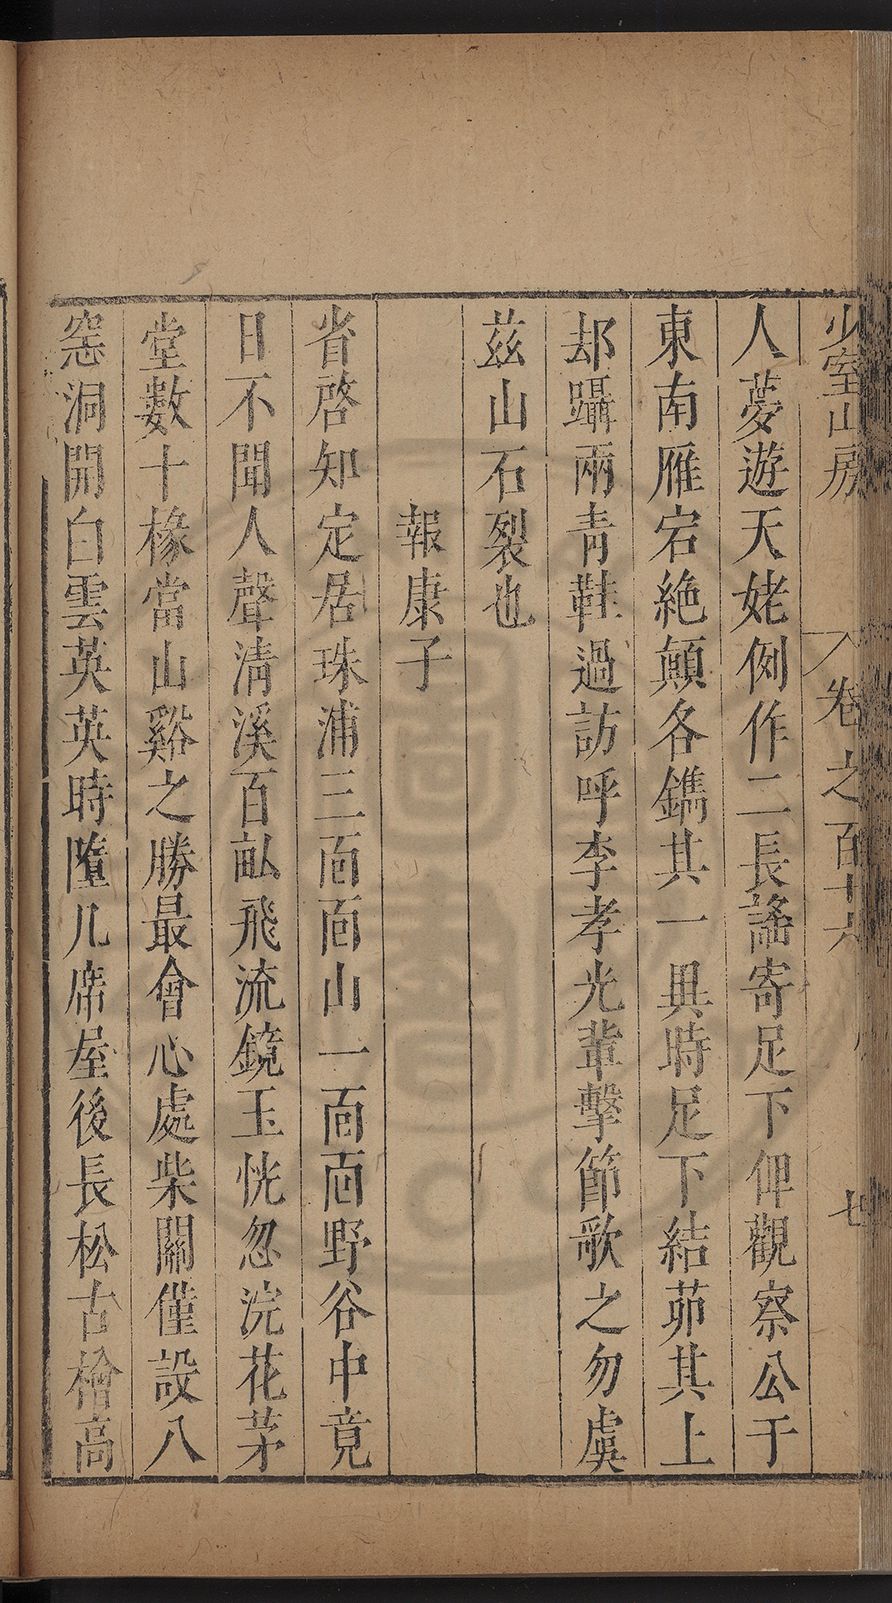 少室山房 卷之百十六 七
人夢遊天姥例作二長謠寄足下俾觀察公于
東南雁宕絶顛各鐫其一異時足下結茆其上
却躡兩青鞋過訪呼李孝光輩擊節歌之勿虞
茲山石裂也
報康子
省啓知定居珠浦三面面山一面面野谷中竟
日不聞人聲清溪百畝飛流鏡玉恍忽浣花茅
堂數十椽當山谿之勝最會心處柴關僅設八
窓洞開白雲英英時墮几席屋後長松古檜高